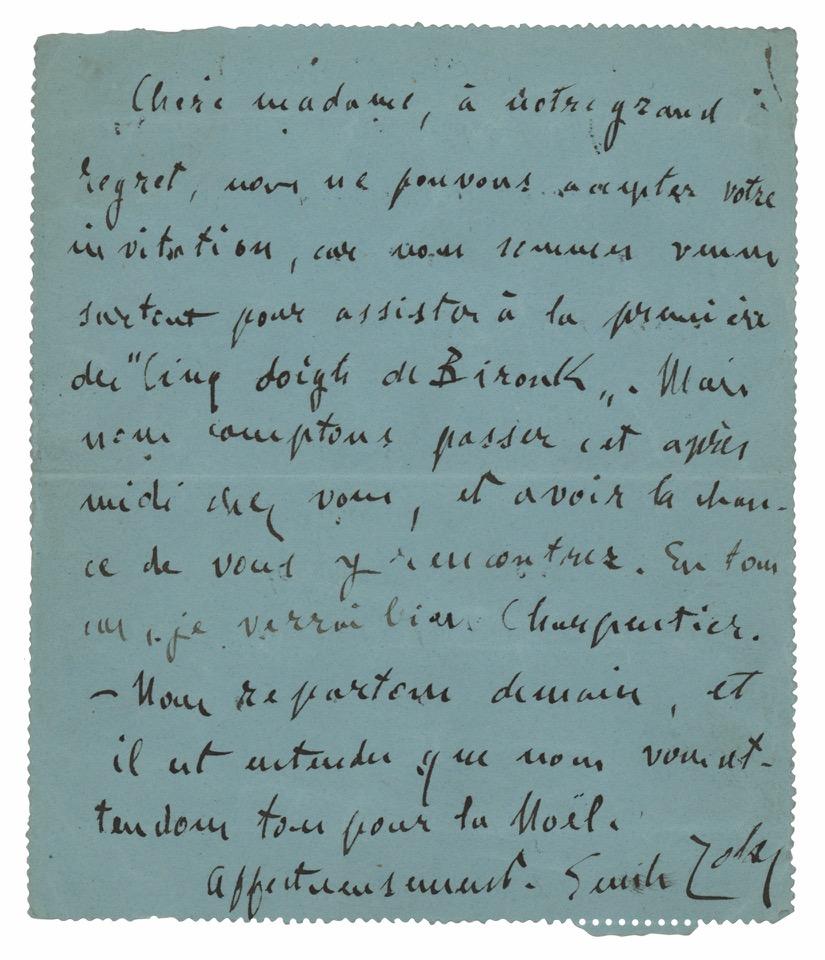 Chère madame, à notre grand
regret, nous ne pouvons accepter votre
invitation, car nous sommes venus
surtout pour assister à la première
des "Cinq doigts de Birouk„. Mais
nous comptons passer cet après
midi chez vous, et avoir la chan-
ce de vous y rencontrer. En tous
cas, je verrai bien Charpentier.
— Nous repartons demain, et
il est entendu que nous vous at-
tendons tous pour la Noël.
Affectueusement. Emile Zola